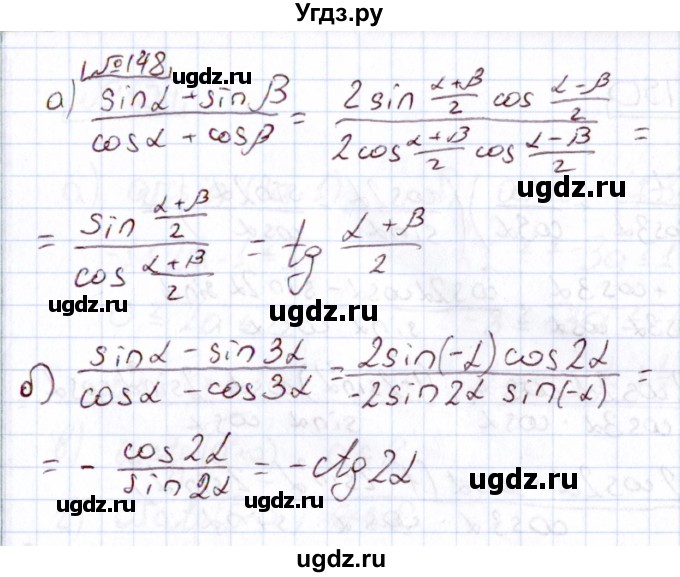 Угдз.ру
№148
а) (sinα + sinβ)/(cosα + cosβ) = (2 sin (α+β)/2 cos (α−β)/2)/(2 cos (α+β)/2 cos (α−β)/2) =
= (sin (α+β)/2)/(cos (α+β)/2) = tg (α+β)/2
б) (sinα − sin3α)/(cosα − cos3α) = (2sin(−α) cos2α)/(−2sin2α sin(−α)) =
= − cos2α/sin2α = −ctg2α
ugdz.ru
ugdz.ru
ugdz.ru
ugdz.ru
ugdz.ru
ugdz.ru
ugdz.ru
ugdz.ru
ugdz.ru
ugdz.ru